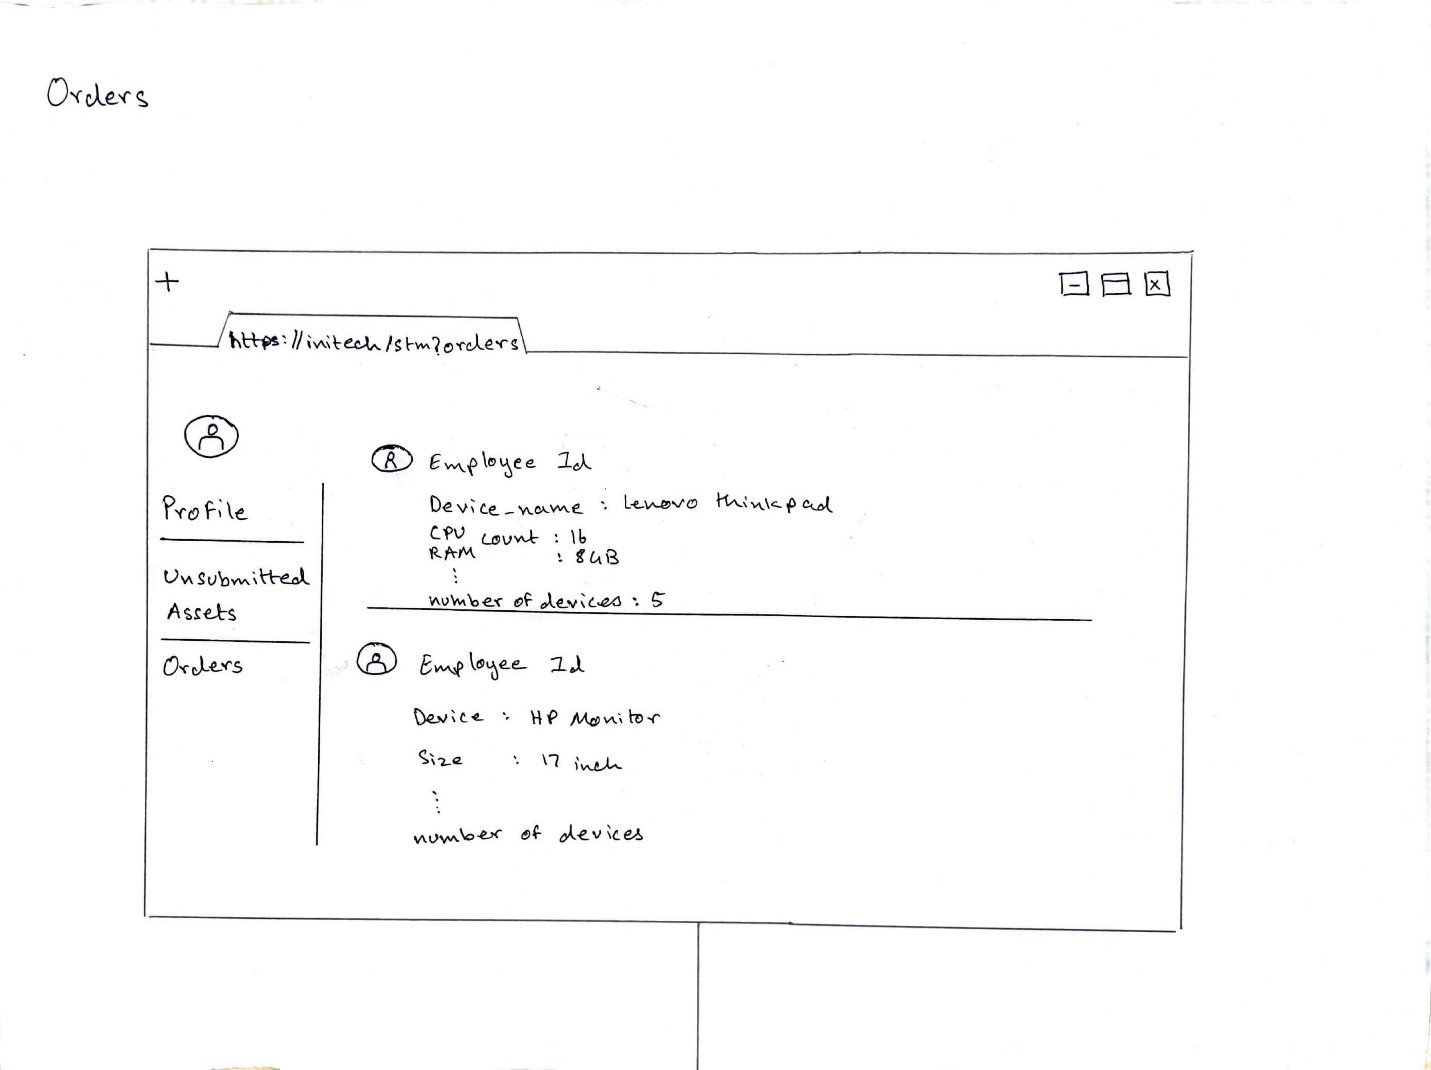 Orders
+
https://initech/stm?orders
Profile
Unsubmitted
Assets
Orders
Employee Id
Device_name : Lenovo thinkpad
CPU count : 16
RAM : 8GB
number of devices : 5
Employee Id
Device : HP Monitor
Size : 17 inch
number of devices